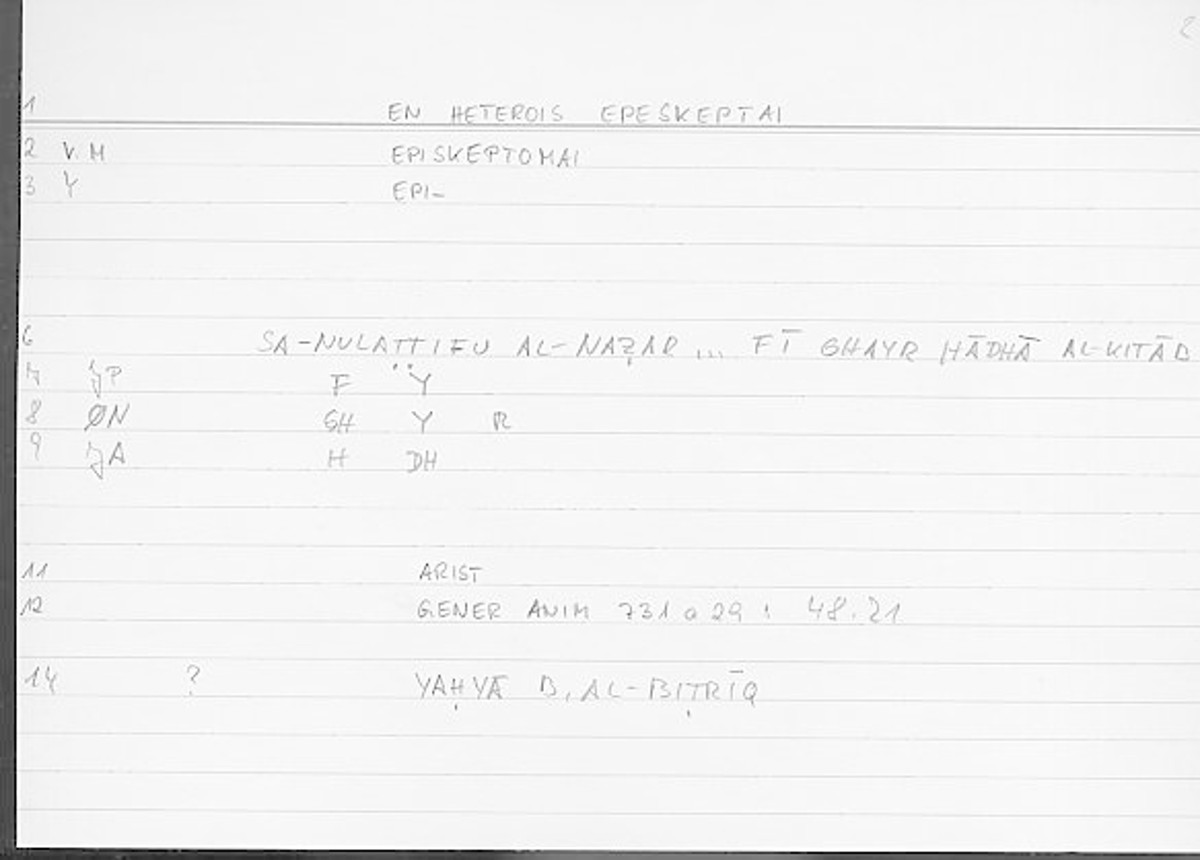 2
1 EN HETEROIS EPESKEPTAI
2 V. M EPISKEPTOMAI
3 Y EPI-
6 SA-NULATTIFU AL-NAẒAR ... FĪ GHAYR HĀDHĀ AL-KITĀB
7 ʒP F Y
8 ØN GH Y R
9 ʒA H DH
11 ARIST
12 GENER ANIM 731 a 29 ; 48.21
14 ? YAḤYĀ B. AL-BIṬRĪQ